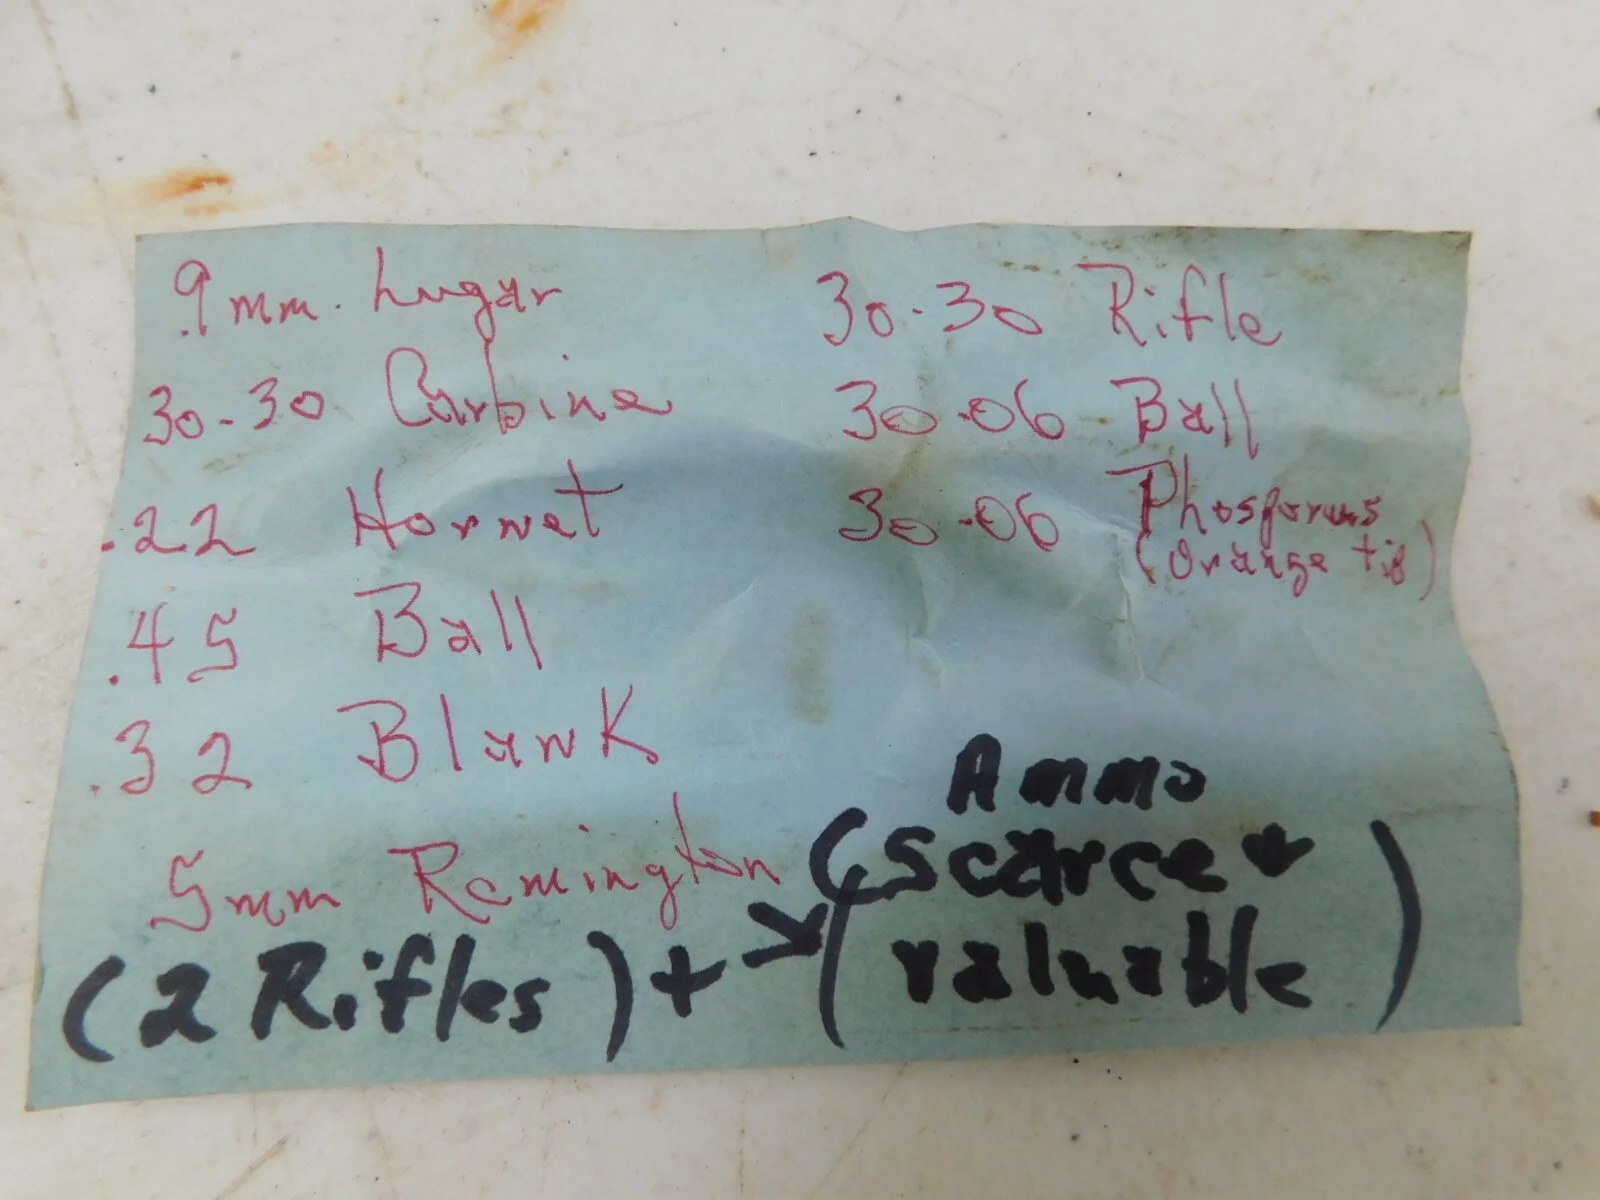 .9mm. Lugar
30-30 Carbine
.22 Hornet
.45 Ball
.32 Blank
5mm Remington
30-30 Rifle
30-06 Ball
30-06 Phosforus
(Orange tip)
(2 Rifles) + →
Ammo
(scarce +
valuable)